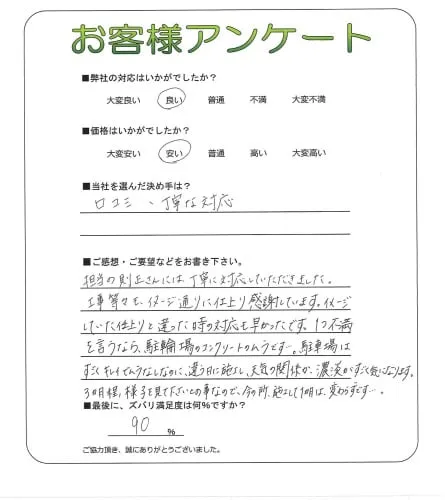 お客様アンケート
■弊社の対応はいかがでしたか?
大変良い 良い 普通 不満 大変不満
■価格はいかがでしたか?
大変安い 安い 普通 高い 大変高い
■当社を選んだ決め手は?
口コミ、丁寧な対応
■ご感想・ご要望などをお書き下さい。
担当の則正さんには丁寧に対応していただきました。
工事等々も、イメージ通りに仕上り感謝しています。イメージ
していた仕上りと違った時の対応も早かったです。1つ不満
を言うなら、駐輪場のコンクリートのムラです…。駐車場は
すごくキレイでムラなしなのに、違う日に施工し、天気の関係か、濃淡がすごく気になります。
3ヶ月程、様子を見て下さいとの事なので、今の所、施工して1ヶ月は、変わらずです…。
■最後に、ズバリ満足度は何%ですか?
90 %
ご協力頂き、誠にありがとうございました。